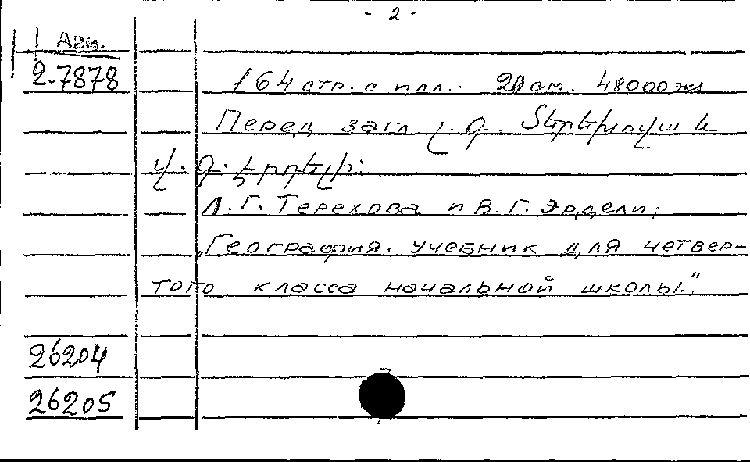 - 2 -
Арм.
2.7878
164 стр. с илл. 20 см. 48000 экз
Перед загл. Լ. Գ. Տերեխովա և
Վ. Գ. Էրդելի:
Л. Г. Терехова и В. Г. Эрдели;
„География. Учебник для четвер-
того класса начальной школы."
26204
26205